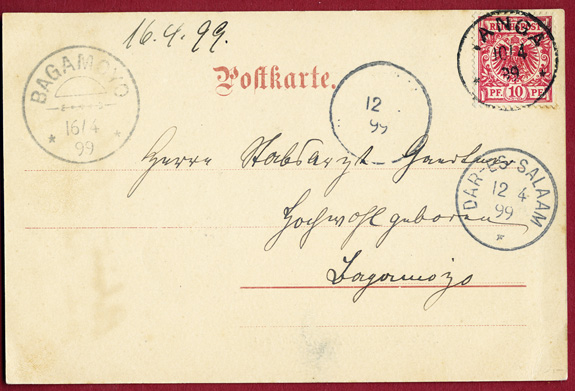 16.4.99.
REICHSPOST
PF. 10 PF.
TANGA
10/4
99
* *
BAGAMOYO
16/4
* 99 *
Postkarte.
12
99
Herrn Stabsarzt
DAR-ES-SALAAM
12 4
99
*
Hochwohlgeboren
Bagamoyo